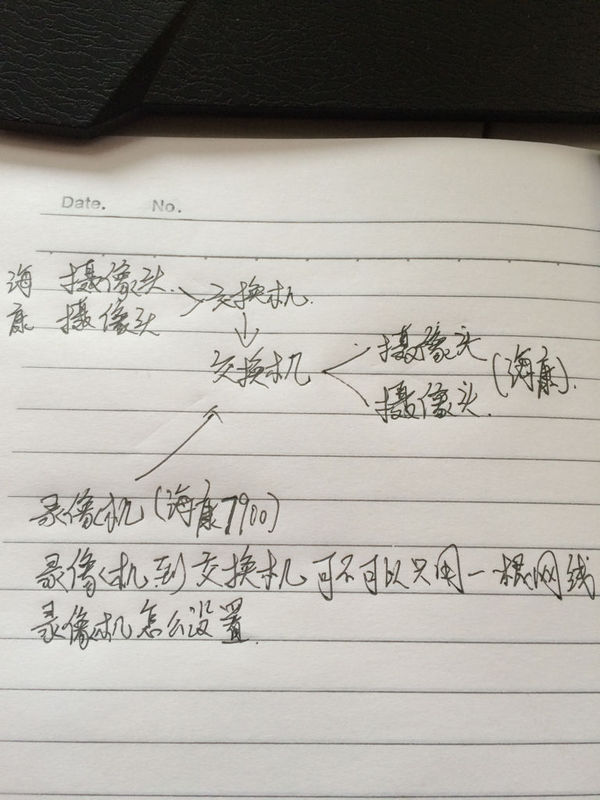 Date. No.
海 摄像头
康 摄像头
交换机
交换机
摄像头
摄像头
(海康)
录像机(海康7900)
录像机到交换机可不可以只用一根网线
录像机怎么设置